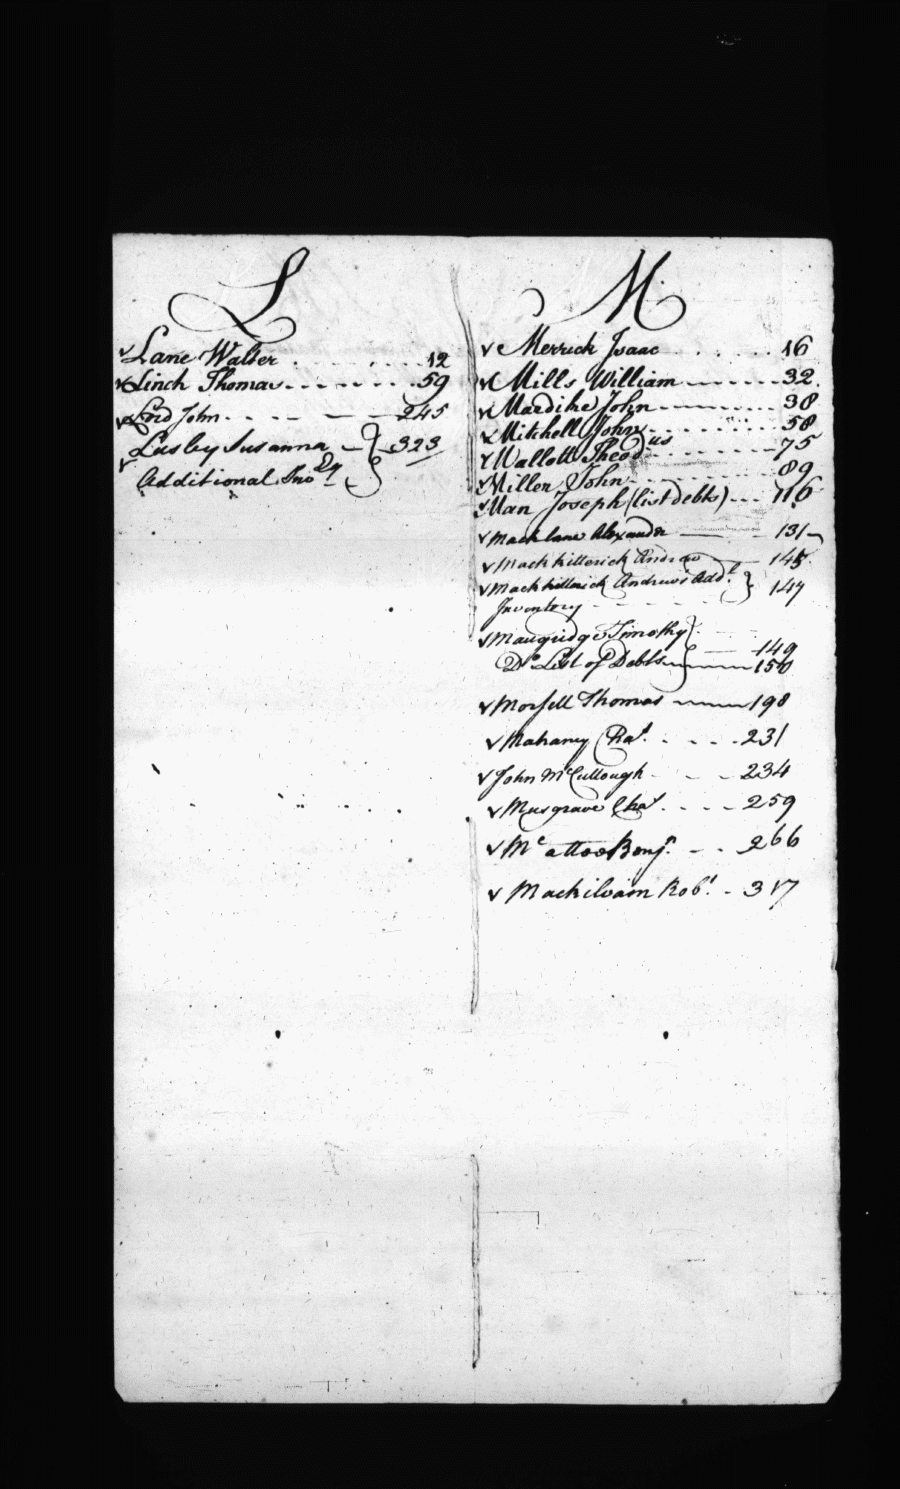 L
Lane Walter 12
Linch Thomas 59
Lord John 245
Lusby Susanna 323
Additional Invy
M
Merrick Isaac 16
Mills William 32
Mardike John 38
Mitchell John 58
Mallott Theodus 75
Miller John 89
Man Joseph (list debts) 116
Macklane Alexander 131
Mackkitterick Andrew 145
Mackkitterick Andrew's Addl
Inventory 147
Maugridge Timothy 149
Do List of Debts 150
Morsell Thomas 198
Mahaney Chas. 231
John McCullough 234
Musgrave Chas. 259
Mcattoo Benjn. 266
Mackilvain Robt. 317